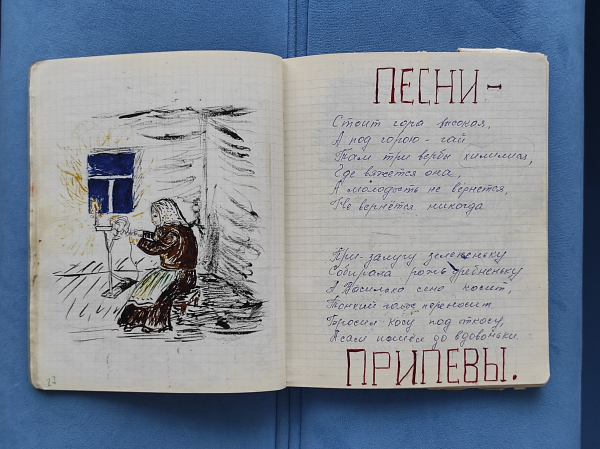 ПЕСНИ-
Стоит гора высокая,
А под горою - гай,
Там три вербы хилилися,
Где вяжется она,
А молодость не вернется,
Не вернётся никогда
При-залугу зелененьку
Собирала рожь дребненьку
А Василько сено косит
Тонкий голос переносит
Бросил косу под откосу,
А сам пошел до вдовоньки
ПРИПЕВЫ.
27